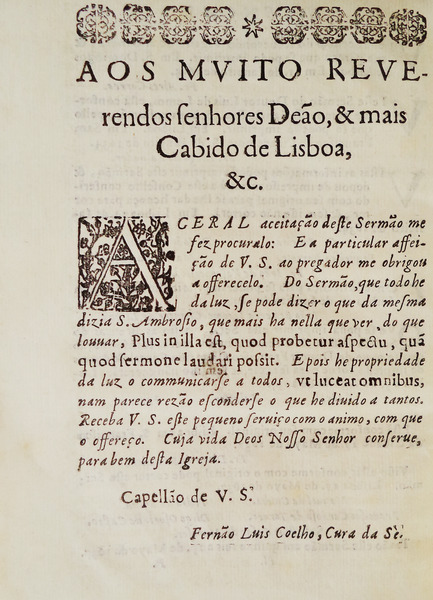 AOS MVITO REVE-
rendos ſenhores Deão, & mais
Cabido de Lisboa,
&c.
A GERAL aceitação deſte Sermão me
fez procuralo: E a particular affei-
ção de V. S. ao pregador me obrigou
a offerecelo. Do Sermão, que todo he
da luz, ſe pode dizer o que da meſma
dizia S. Ambroſio, que mais ha nella que ver, do que
louuar, Plus in illa eſt, quod probetur aſpectu, quã
quod ſermone laudari poſſit. E pois he propriedade
da luz o communicarſe a todos, vt luceat omnibus,
nam parece rezão eſconderſe o que he diuido a tantos.
Receba V. S. eſte pequeno ſeruiço com o animo, com que
o offereço. Cuja vida Deos Noſſo Senhor conſerue,
para bem deſta Igreja.
Capellão de V. S.
Fernão Luis Coelho, Cura da Sè.